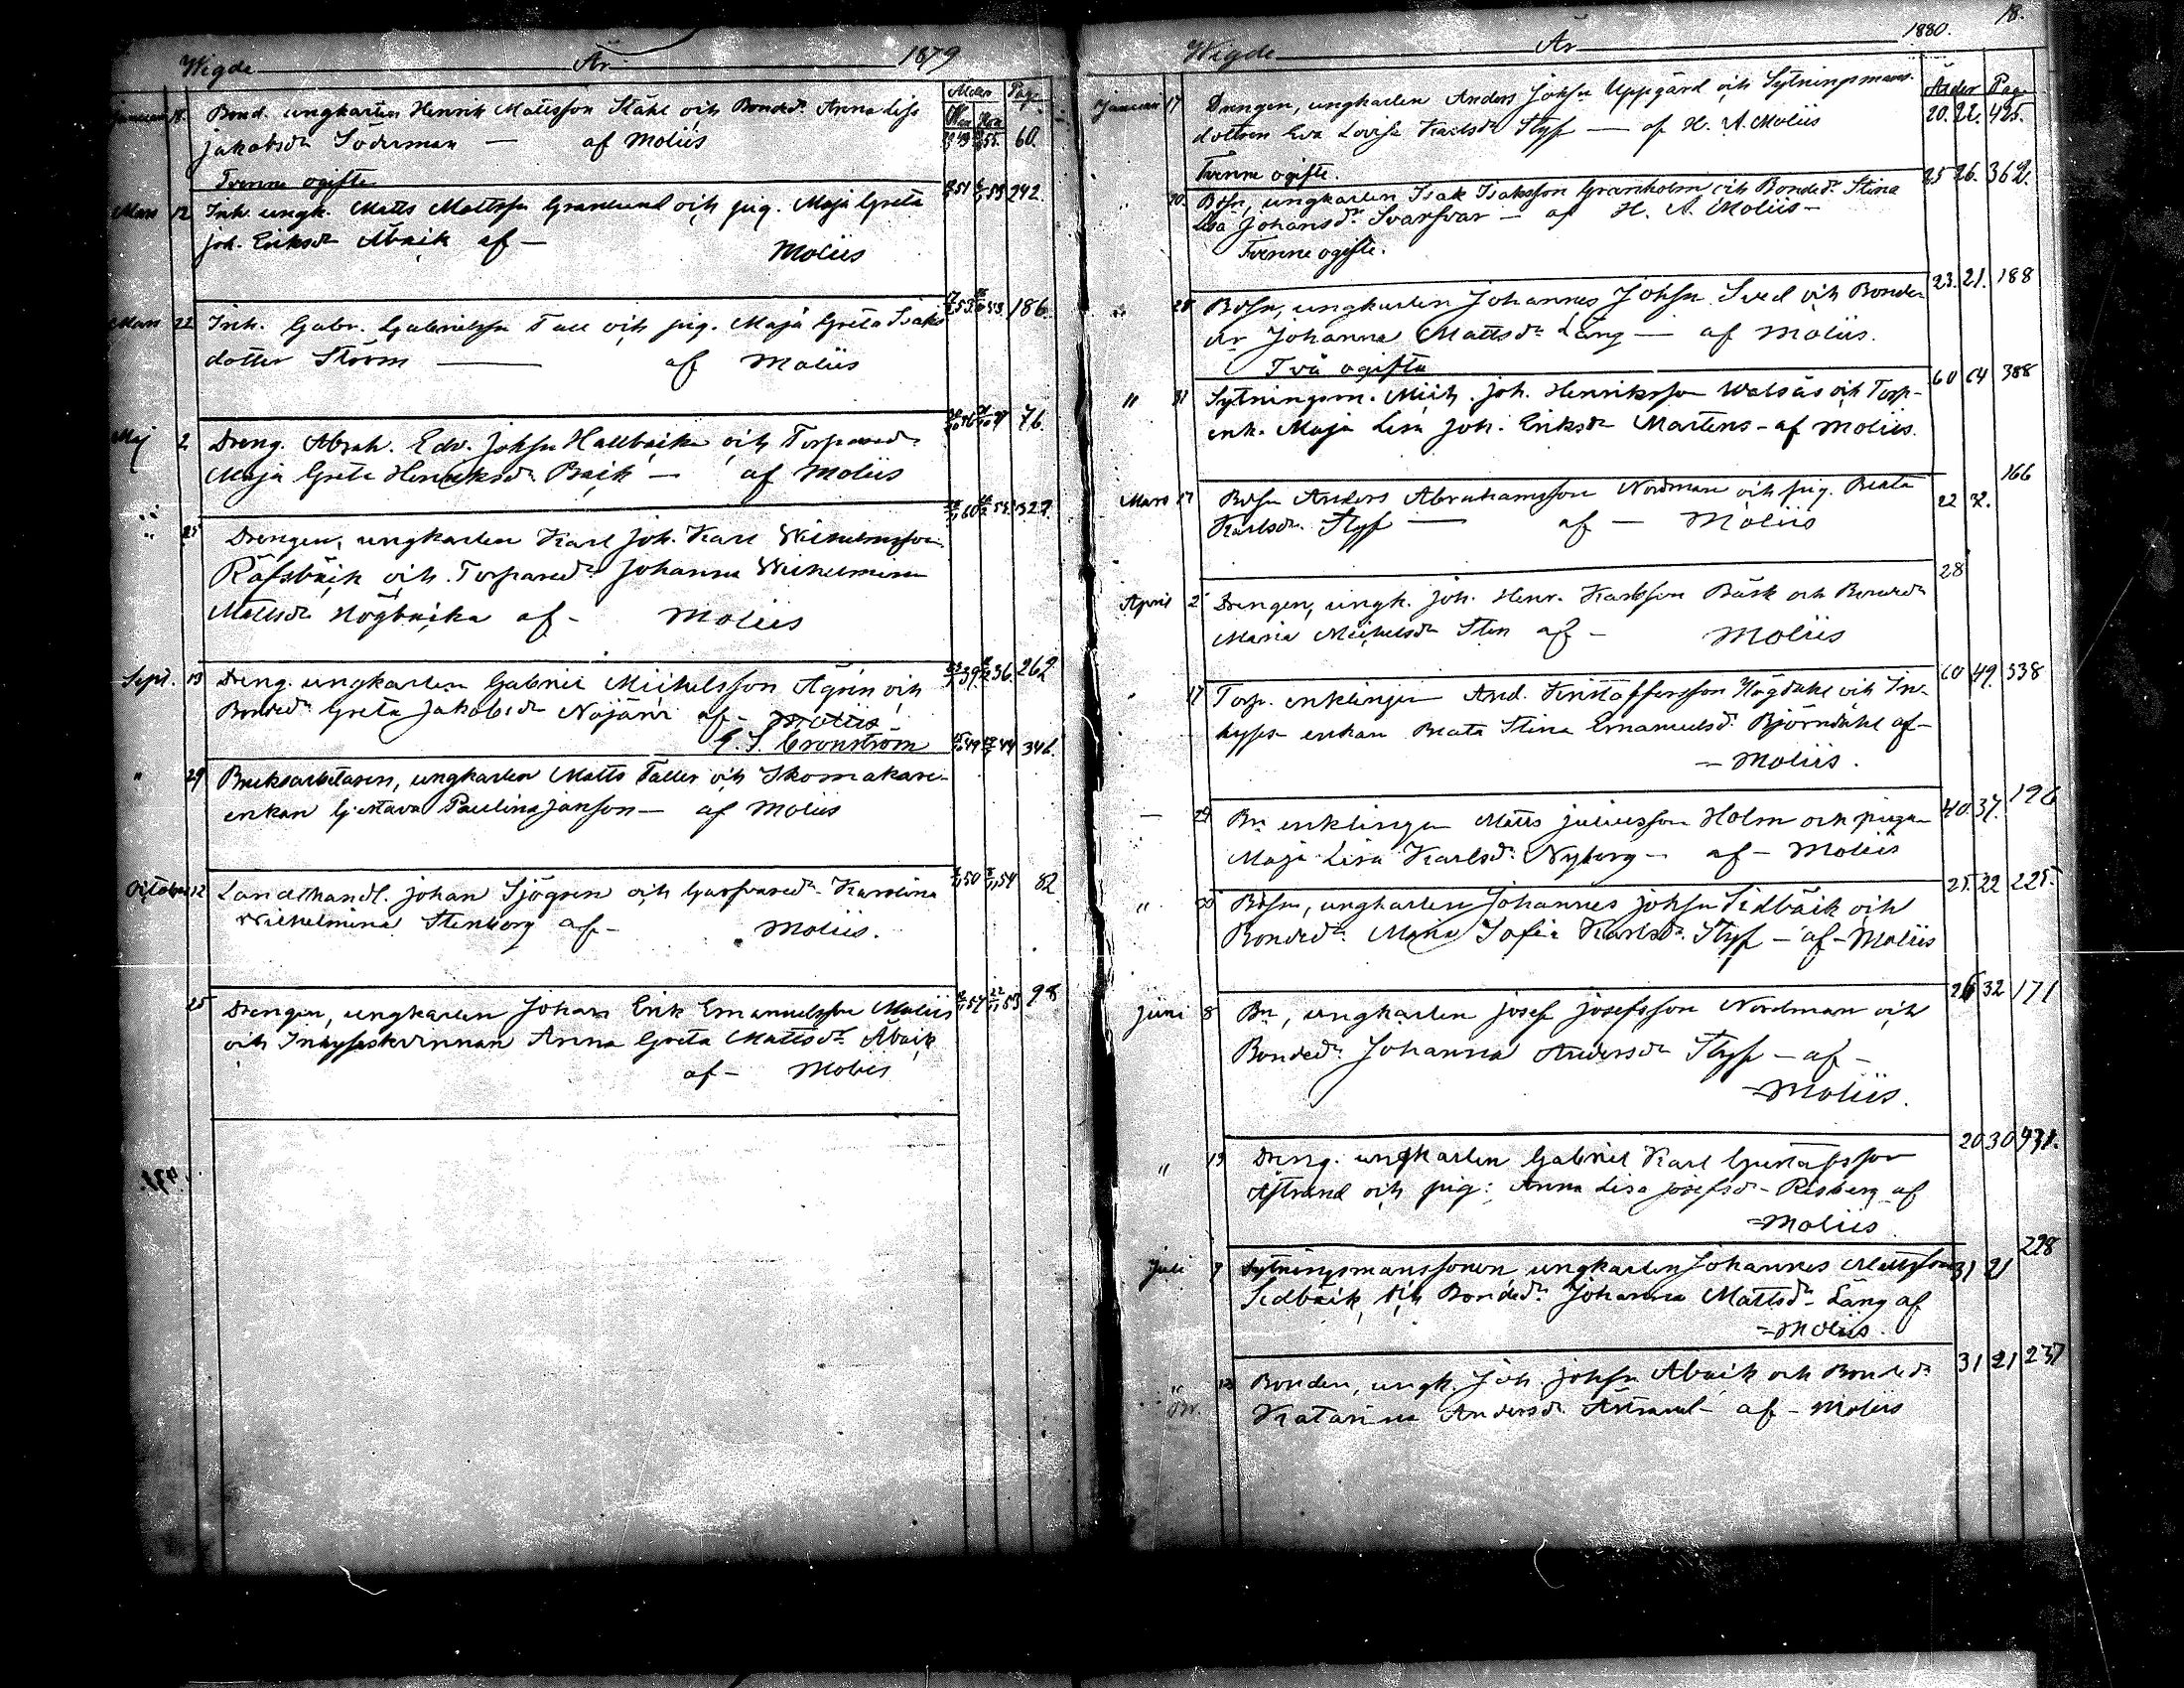 Wigde År 1879
Ålder Pag.
Januari 18 Bond. ungkarlen Henrik Mattsson Ståhl och Bondedr Anna Lisa 60.
Jakobsdr Söderman — af Moliis
Tvenne ogifte
Mars 12 Inh. ungk. Matts Mattsson Granlund och pig. Maja Greta 51 53 242.
Joh. Eriksdr Åbäck af —
Moliis
Mars 22 Inh. Gabr. Gabrielsson Tall och pig. Maja Greta Isaks 186.
dotter Ström — af Moliis
Maj 2 Dreng. Abrah. Edv. Johsn Hallbäcka och Torparedr 76.
Maja Greta Henriksdr Bäck — af Moliis
" 25 Drengen, ungkarlen Karl Joh. Karl Wilhelmsson 327.
Räfsbäck och Torparedr Johanna Wilhelmina
Mattsdr Högbacka af — Moliis
Sept. 13 Dreng. ungkarlen Gabriel Michelsson Ågren och 39 36. 262
Bondedr Greta Jakobsdr Nöjärvi af — Moliis
G. S. Cronström
" 29 Bruksarbetaren, ungkarlen Matts Taller och Skomakare- 49 44 346.
enkan Gustava Paulina Janson — af Moliis
October 12 Landthandl. Johan Sjögren och Garfvaredr Karolina 50 54 82
Wilhelmina Stenborg af — Moliis.
25 Drengen, ungkarlen Johan Erik Emanuelsson Moliis 54 53 98
och Inhyseskvinnan Anna Greta Mattsdr Åbäck
af — Moliis
Wigde År 1880. 18.
Ålder Pag.
Januari 17 Drengen, ungkarlen Anders Johsn Uppgård och Sytningsmans- 20. 22. 425.
dottren Eva Lovisa Karlsdr Styf — af H. A. Moliis
Tvenne ogifte.
" 20. Bdsn, ungkarlen Isak Isaksson Granholm och Bondedr Stina 25 26. 362.
Lisa Johansdr Svarfvar — af H. A. Moliis —
Tvenne ogifte.
" 28 Bdsn, ungkarlen Johannes Johsn Sved och Bonde- 23. 21. 188
dr Johanna Mattsdr Lång — af Moliis.
Två ogifta
" 31 Sytningsm. Mich. Joh. Henriksson Walsås och Torp- 60 64 388
enk. Maja Lisa Joh. Eriksdr Martens — af Moliis.
Mars 17 Bdsn Anders Abrahamsson Nordman och pig. Beata 22 32. 166
Karlsdr Styf — af — Moliis
April 2 Drengen, ungk. Joh. Henr. Karlsson Bäck och Bondedr 28
Maria Michelsdr Sten af — Moliis
" 17 Torp. enklingen And. Kristoffersson Högdahl och In- 60 49. 338
hyses- enkan Beata Stina Emanuelsdr Björndahl af —
— Moliis.
— 24 Bn enklingen Matts Juliusson Holm och pigan 40. 37. 196
Maja Lisa Karlsdr Nyberg — af — Moliis
" 30 Bdsn, ungkarlen Johannes Johsn Sidbäck och 25. 22 225.
Bondedr Maria Sofia Karlsdr Styf — af — Moliis
Juni 8 Bn, ungkarlen Josef Josefsson Nordman och 26 32 171
Bondedr Johanna Andersdr Styf — af —
— Moliis.
" 19 Dreng. ungkarlen Gabriel Karl Gustafsson 20 30 431.
Åstrand och pig: Anna Lisa Josefsdr Risberg af
— Moliis
Juli 9 Sytningsmanssonen, ungkarlen Johannes Mattsson 31 21 228
Sidbäck och Bondedr Johanna Mattsdr Lång af
— Moliis.
" Bonden, ungk. Joh. Johsn Åbäck och Bondedr 31 21 237
Katarina Andersdr Åstrand — af — Moliis